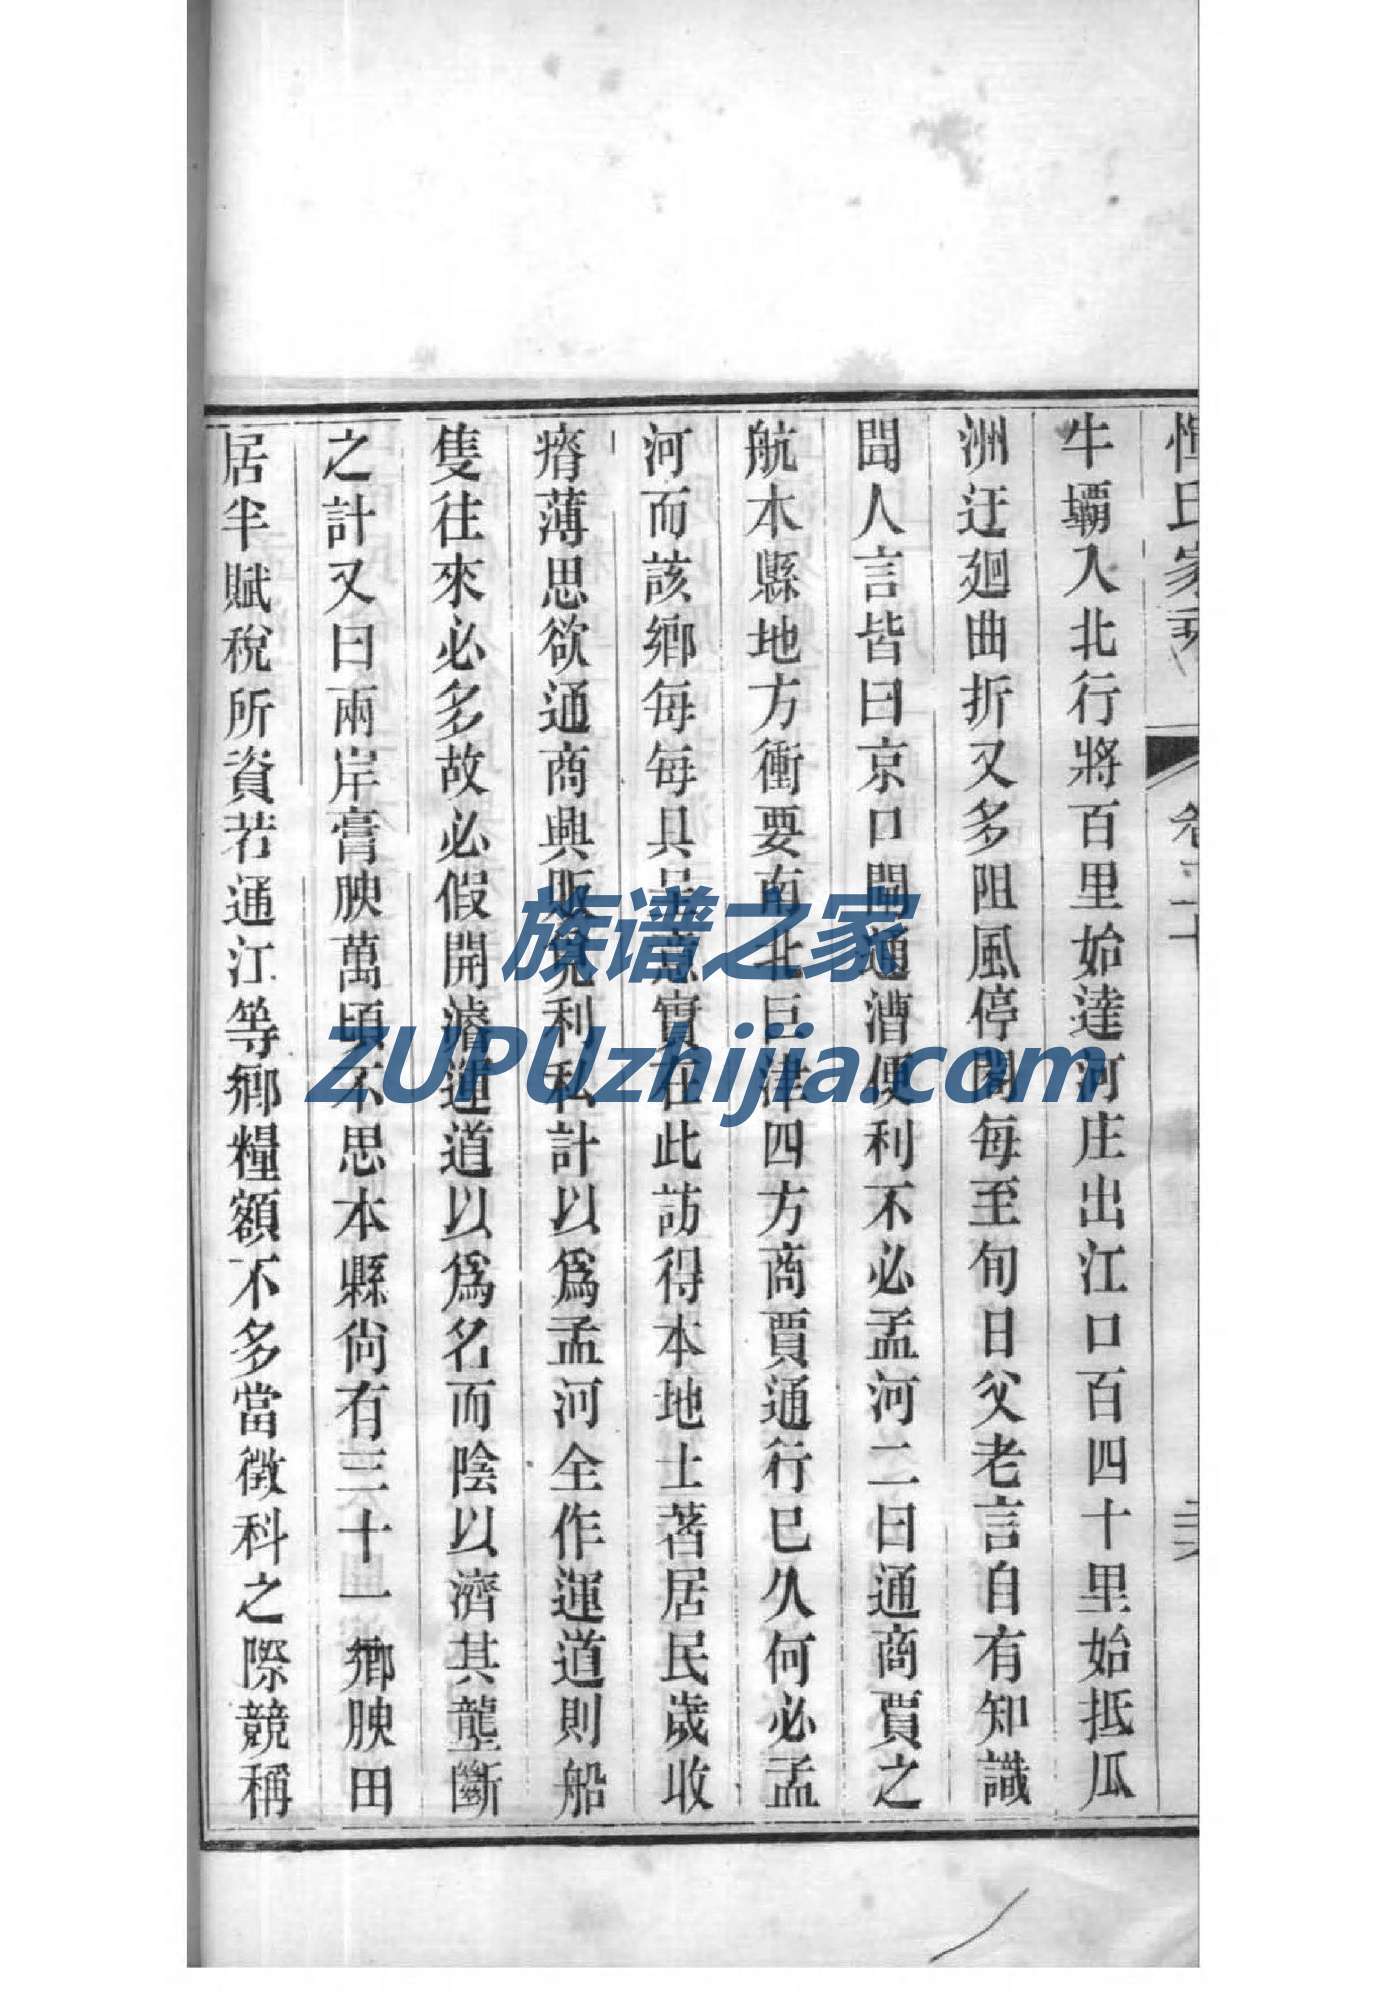 惲氏家乘 卷二十
牛壩入北行將百里始達河庄出江口百四十里始抵瓜
洲迂廻曲折又多阻風停閣每至旬日父老言自有知識
聞人言皆曰京口閘通漕便利不必孟河二曰通商賈之
航本縣地方衝要南北巨津四方商賈通行已久何必孟
河而該鄉每每具呈意實在此訪得本地土著居民歲收
瘠薄思欲通商興販兌利私計以爲孟河全作運道則船
隻往來必多故必假開濬運道以爲名而陰以濟其壟斷
之計又曰兩岸膏腴萬頃不思本縣尙有三十一鄉腴田
居半賦稅所資若通江等鄉糧額不多當徵科之際競稱
族谱之家
ZUPUzhijia.com